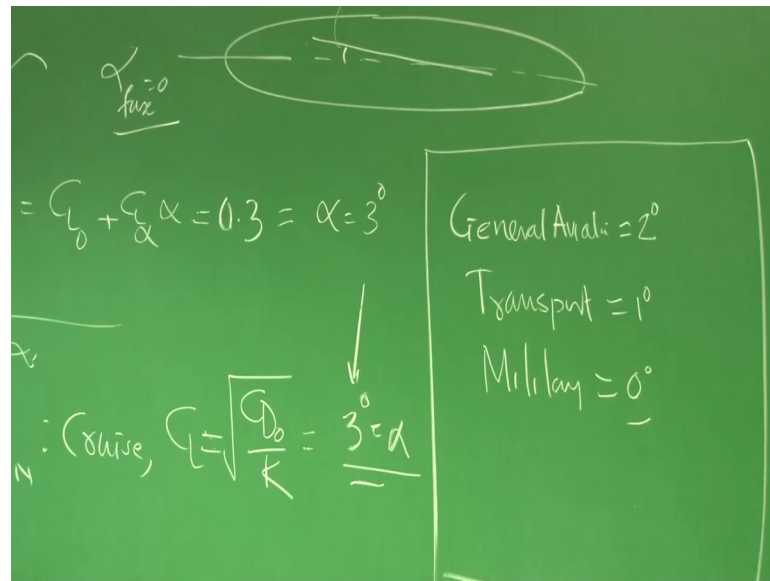 α fus = 0
= C_L₀ + C_Lα α = 0.3 = α = 3°
α.
N : Cruise, C_L = √(C_D₀ / K) = 3° = α
General Aviati = 2°
Transport = 1°
Military = 0°